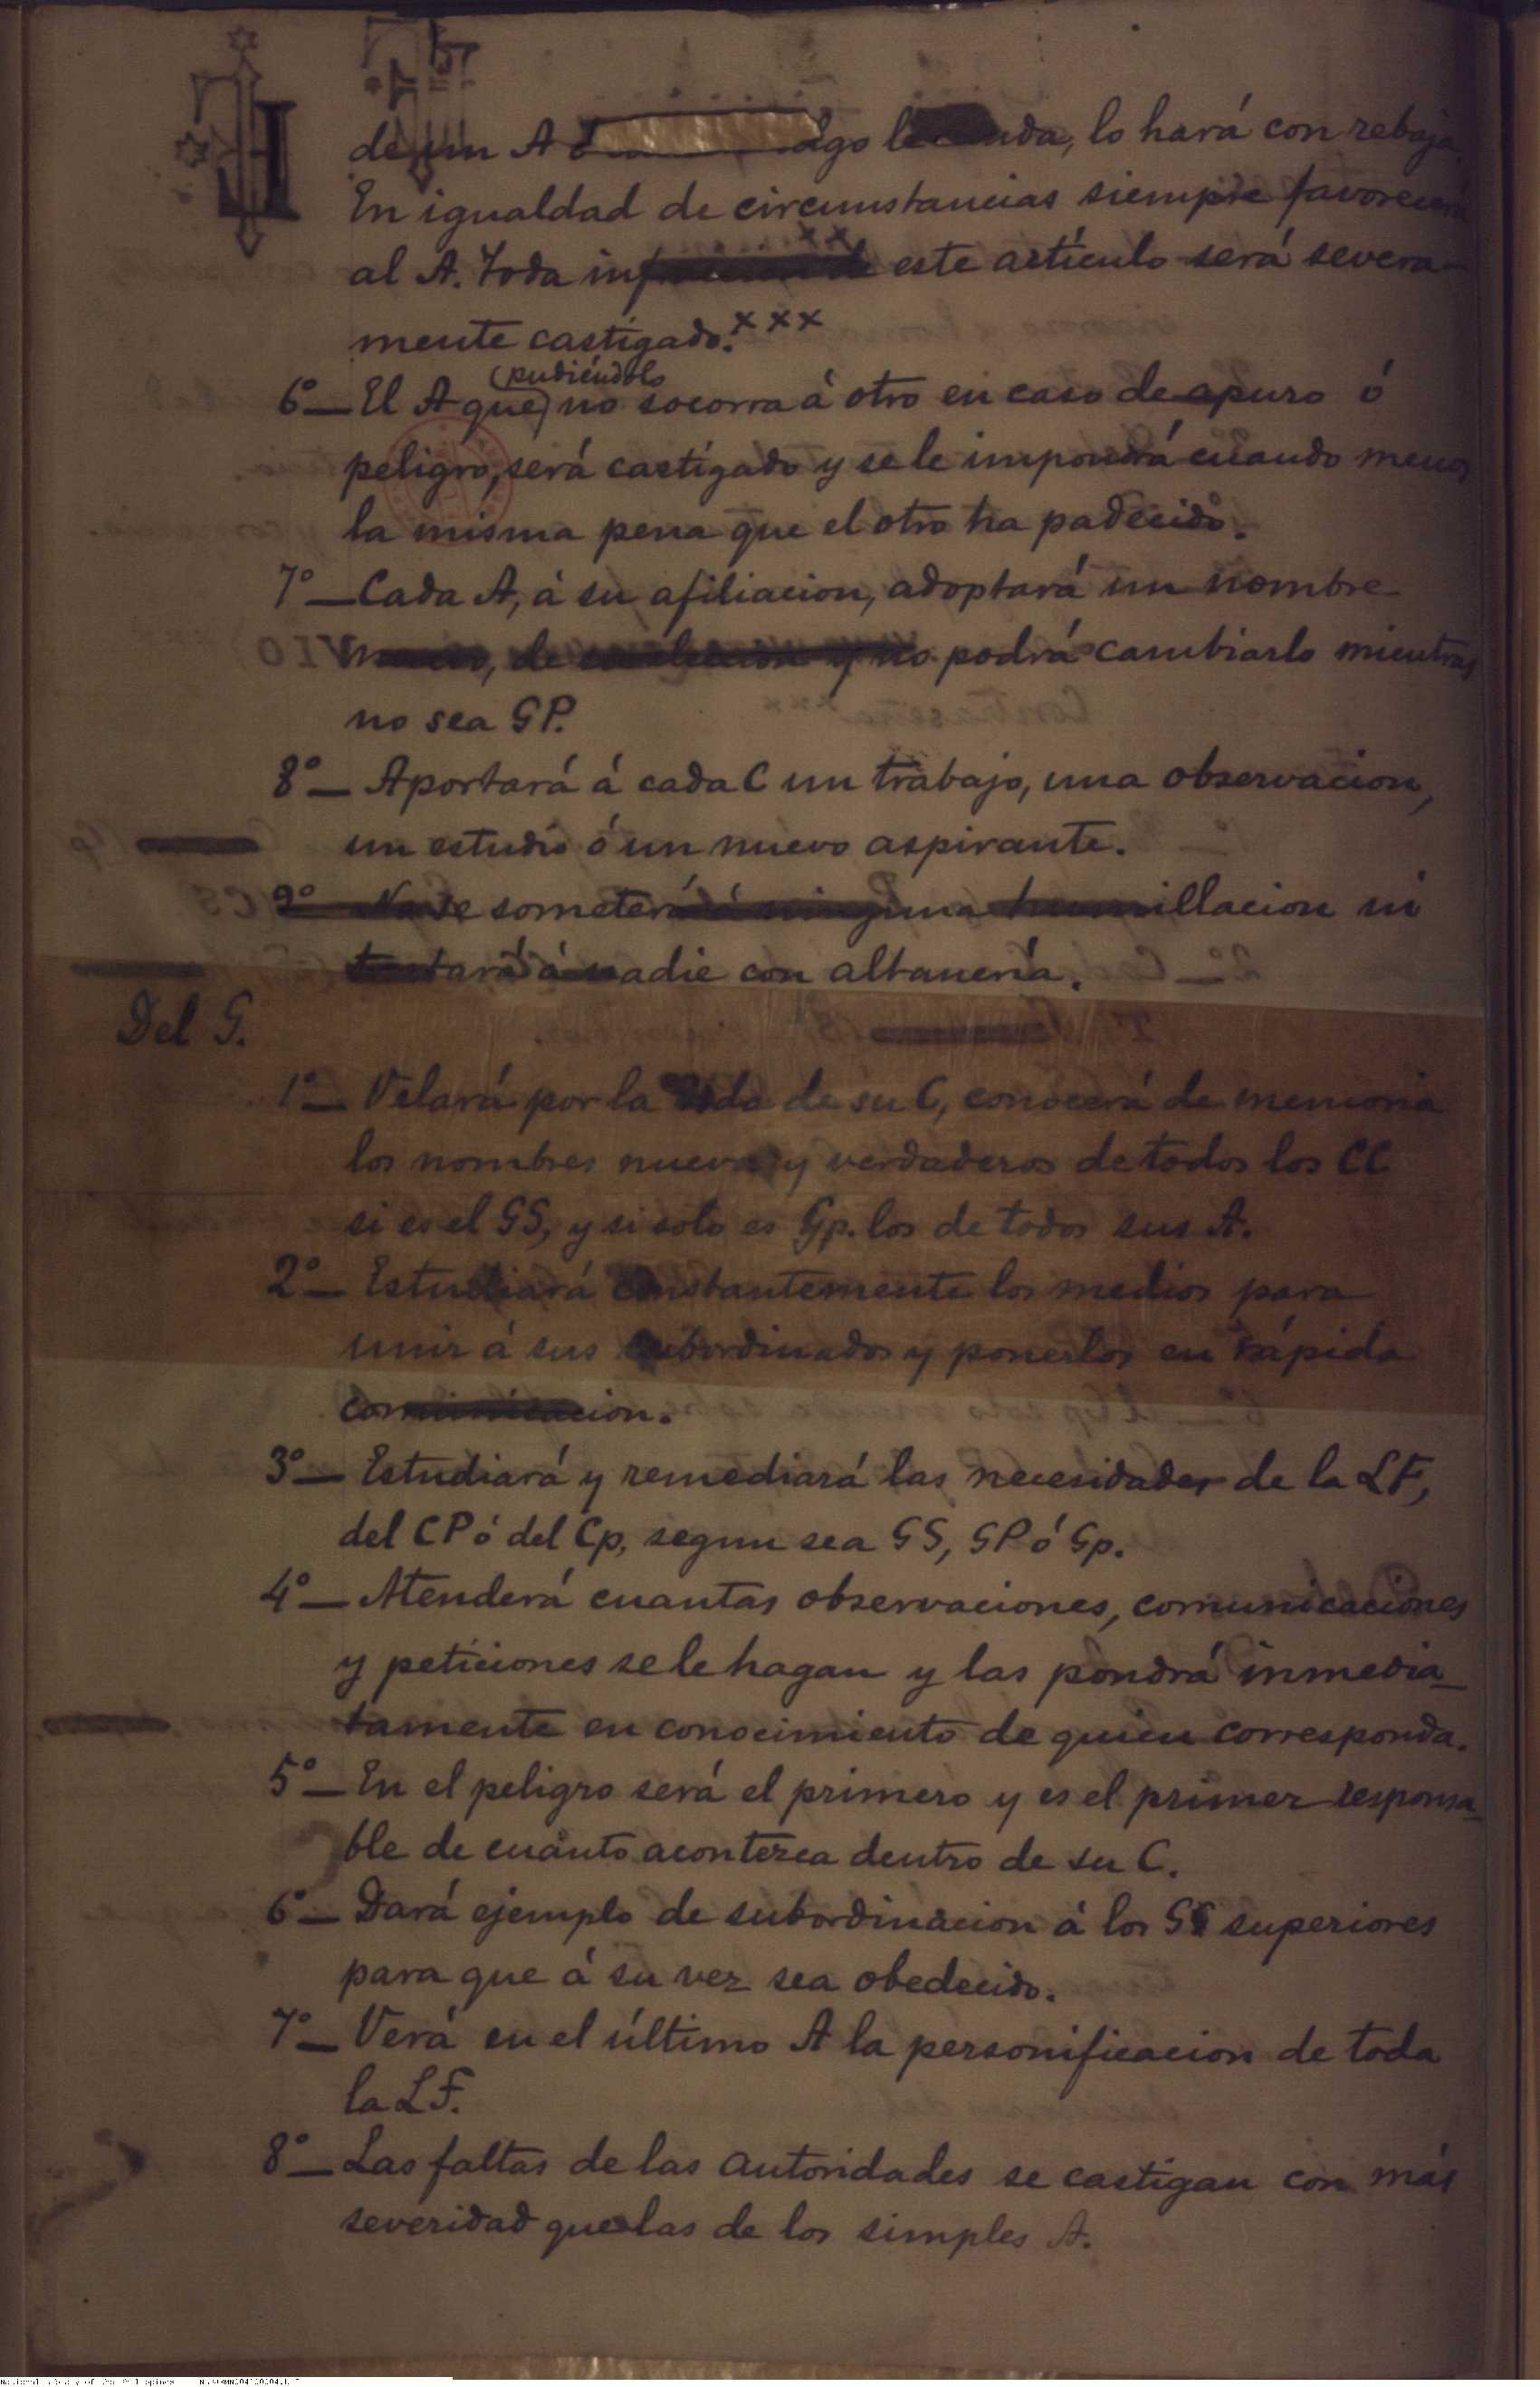 de un A lo hará con rebaja.
En igualdad de circunstancias siempre favorecerá
al A. Toda este artículo será severa-
mente castigado. xxx
(pudiéndolo
6º— El A que) no socorra á otro en caso de apuro ó
peligro, será castigado y se le impondrá cuando menos
la misma pena que el otro ha padecido.
7º— Cada A, á su afiliacion, adoptará un nombre
nuevo, de su eleccion y no podrá cambiarlo mientras
no sea GP.
8º— Aportará á cada C un trabajo, una observacion,
un estudio ó un nuevo aspirante.
9º No se someterá á ninguna humillacion ni
tratará á nadie con altanería.
Del G.
1º— Velará por la vida de su C, conocerá de memoria
los nombres nuevos y verdaderos de todos los CC
si es el GS, y si solo es Gp. los de todos sus A.
2º— Estudiará constantemente los medios para
unir á sus subordinados y ponerlos en rápida
comunicacion.
3º— Estudiará y remediará las necesidades de la LF,
del CP ó del Cp, segun sea GS, GP ó Gp.
4º— Atenderá cuantas observaciones, comunicaciones
y peticiones se le hagan y las pondrá inmedia-
tamente en conocimiento de quien corresponda.
5º— En el peligro será el primero y es el primer responsa-
ble de cuanto acontezca dentro de su C.
6º— Dará ejemplo de subordinacion á los superiores
para que á su vez sea obedecido.
7º— Verá en el último A la personificacion de toda
la LF.
8º— Las faltas de las autoridades se castigan con más
severidad que las de los simples A.